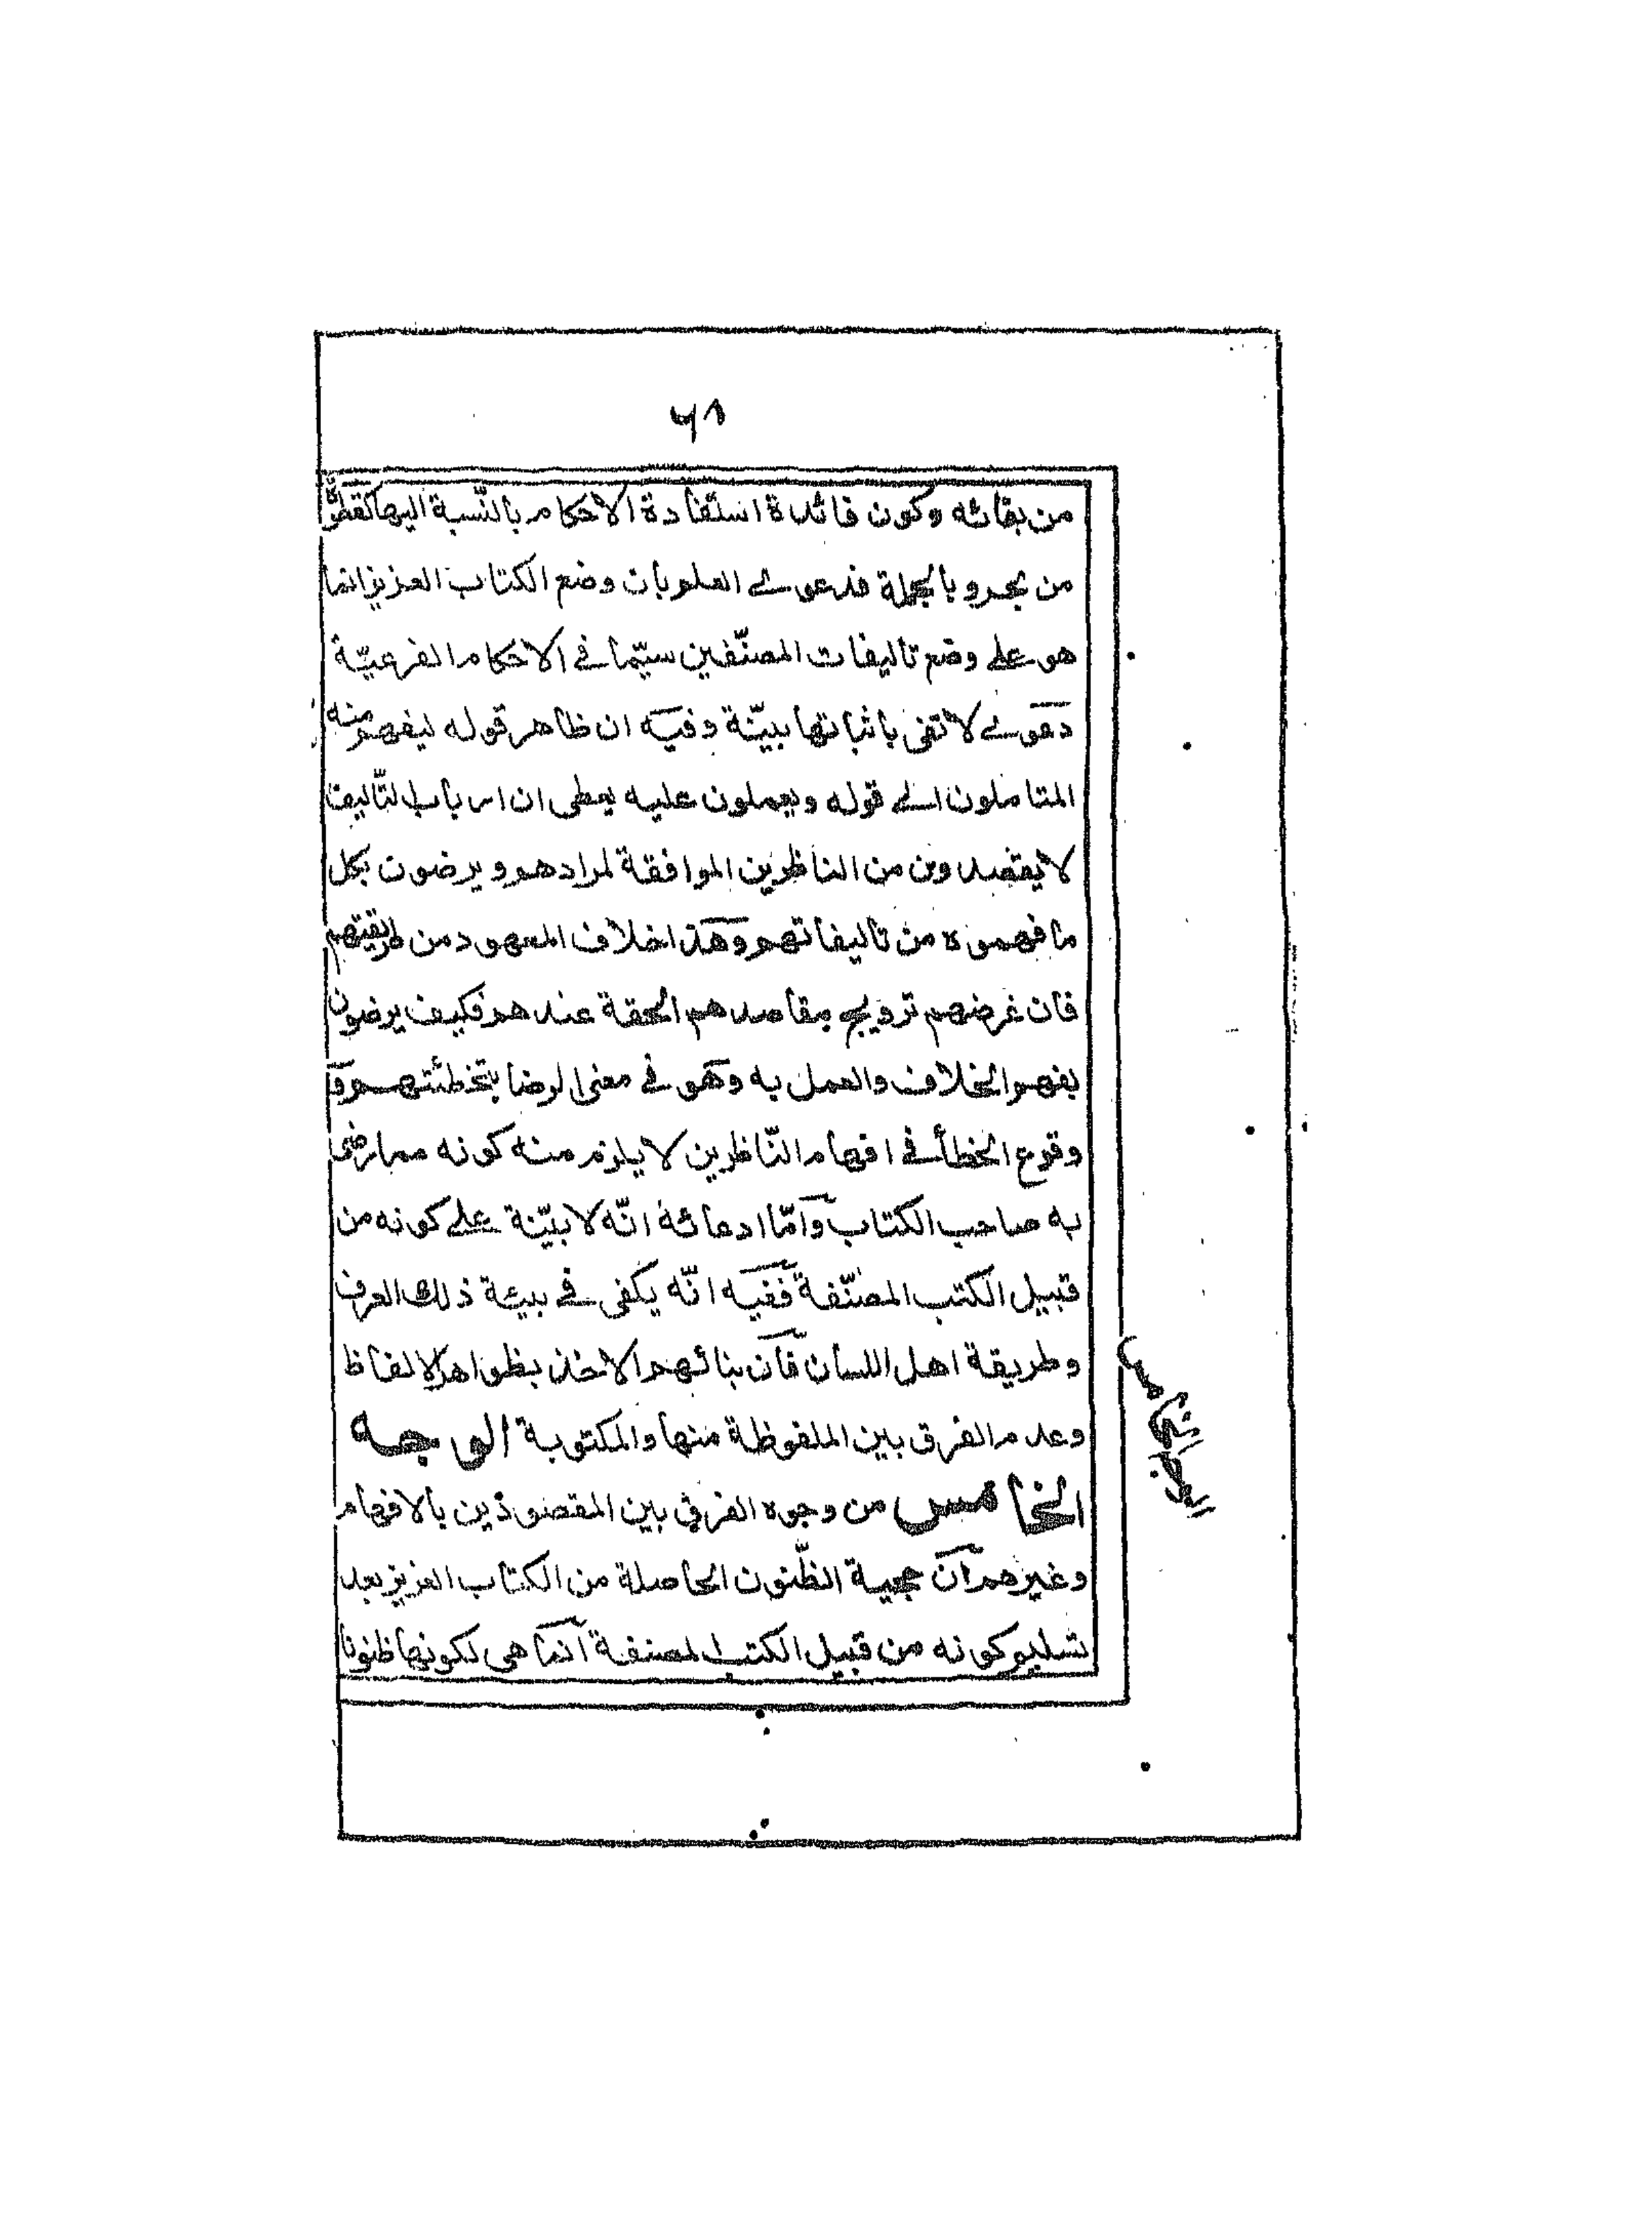 ٦٨
من بقائه وكون فائدة استفادة الاحكام بالنّسبة اليها كقطرة
من بحر وبالجملة فدعوے العلم بان وضع الكتاب العزيز انما
هو علے وضع تاليفات المصنّفين سيّما فے الاحكام الفرعيّة
دعوے لا تفى باثباتها بيّنة وفيه ان ظاهر قوله ليفهم منه
المتاملون الے قوله ويعملون عليه يعطى ان ارباب التّاليف
لا يقصدون من الناظرين الموافقة لمرادهم ويرضون بكل
ما فهموه من تاليفاتهم وهذا خلاف المعهود من طريقتهم
فان غرضهم ترويج مقاصدهم الحقة عندهم فكيف يرضون
بفهم الخلاف والعمل به وهو فے معنى الرضا بتخطئتهم و
وقوع الخطأ فے افهام النّاظرين لا يلزم منه كونه مما رضى
به صاحب الكتاب وامّا ادعائه انّه لا بيّنة علے كونه من
قبيل الكتب المصنّفة ففيه انّه يكفى فے بيئة ذلك العرف
وطريقة اهل اللسان فان بنائهم الاخذ بظواهر الالفاظ
وعدم الفرق بين الملفوظة منها والمكتوبة الوجه
الخامس من وجوه الفرق بين المقصودين بالافهام
وغيرهم ان حجية الظّنون الحاصلة من الكتاب العزيز بعد
تسليم كونه من قبيل الكتب المصنفة انما هى لكونها ظنونا
الوجه الخامس